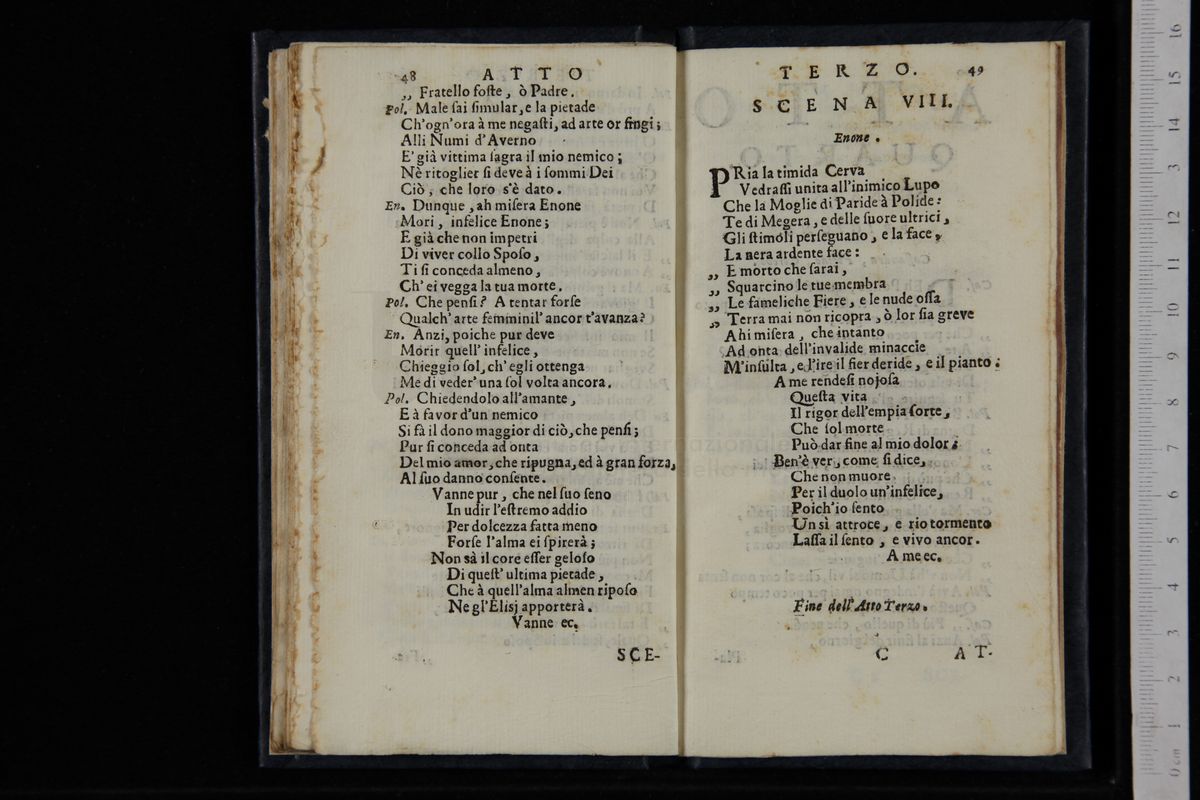 48 ATTO
„ Fratello foſte, ò Padre.
Pol. Male ſai ſimular, e la pietade
Ch'ogn'ora à me negaſti, ad arte or fingi;
Alli Numi d'Averno
E' già vittima ſagra il mio nemico;
Nè ritoglier ſi deve à i ſommi Dei
Ciò, che loro s'è dato.
En. Dunque, ah miſera Enone
Mori, infelice Enone;
E già che non impetri
Di viver collo Spoſo,
Ti ſi conceda almeno,
Ch' ei vegga la tua morte.
Pol. Che penſi? A tentar forſe
Qualch' arte femminil' ancor t'avanza?
En. Anzi, poiche pur deve
Morir quell' infelice,
Chieggio ſol, ch' egli ottenga
Me di veder' una ſol volta ancora.
Pol. Chiedendolo all'amante,
E à favor d'un nemico
Si fà il dono maggior di ciò, che penſi;
Pur ſi conceda ad onta
Del mio amor, che ripugna, ed à gran forza,
Al ſuo danno conſente.
Vanne pur, che nel ſuo ſeno
In udir l'eſtremo addio
Per dolcezza fatta meno
Forſe l'alma ei ſpirerà;
Non sà il core eſſer geloſo
Di queſt' ultima pietade,
Che à quell'alma almen ripoſo
Ne gl'Elisj apporterà.
Vanne ec.
SCE-
TERZO. 49
SCENA VIII.
Enone.
PRia la timida Cerva
Vedraſſi unita all'inimico Lupo
Che la Moglie di Paride à Polide:
Te di Megera, e delle ſuore ultrici,
Gli ſtimoli perſeguano, e la face,
La nera ardente face:
„ E morto che ſarai,
„ Squarcino le tue membra
„ Le fameliche Fiere, e le nude oſſa
„ Terra mai non ricopra, ò lor ſia greve
Ahi miſera, che intanto
Ad onta dell'invalide minaccie
M'inſulta, e l'ire il fier deride, e il pianto:
A me rendeſi nojoſa
Queſta vita
Il rigor dell'empia ſorte,
Che ſol morte
Può dar fine al mio dolor:
Ben'è ver, come ſi dice,
Che non muore
Per il duolo un'infelice,
Poich'io ſento
Un sì attroce, e rio tormento
Laſſa il ſento, e vivo ancor.
A me ec.
Fine dell' Atto Terzo.
C AT-